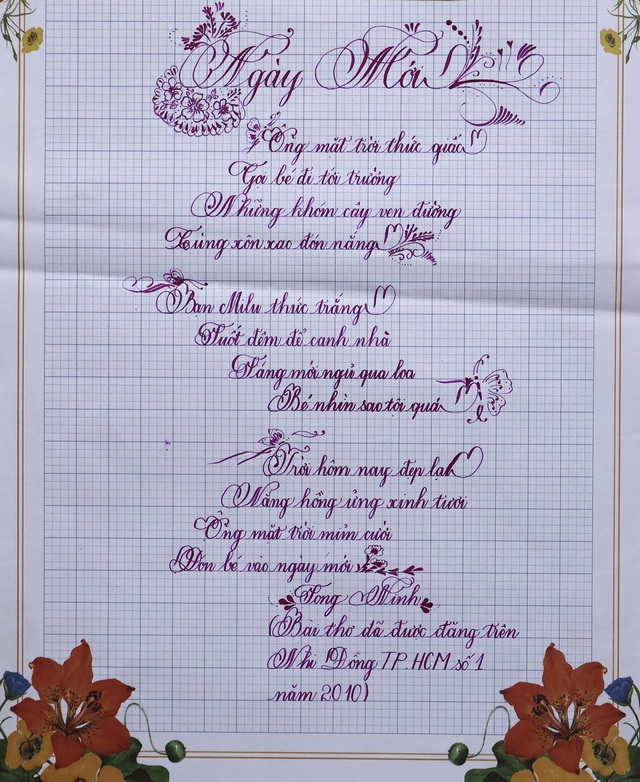 Ngày Mới
Ông mặt trời thức giấc
Gọi bé đi tới trường
Những khóm cây ven đường
Cùng xôn xao đón nắng
Bạn Milu thức trắng
Suốt đêm để canh nhà
Sáng mới ngủ qua loa
Bé nhìn sao tội quá
Trời hôm nay đẹp lạ
Nắng hồng ửng xinh tươi
Ông mặt trời mỉm cười
Đón bé vào ngày mới
Tống Ninh
(Bài thơ đã được đăng trên
Nhi Đồng TP.HCM số 1
năm 2010)